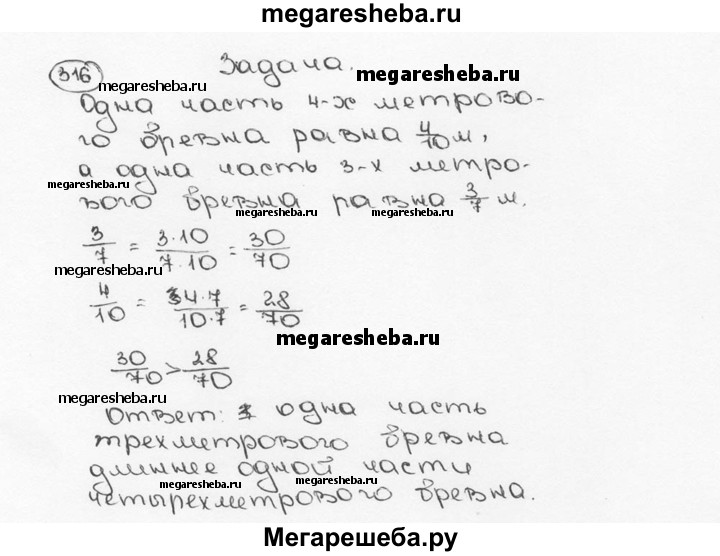 megaresheba.ru
316 Задача.
megaresheba.ru
megaresheba.ru
Одна часть 4-х метрово-
го бревна равна 4/10 м,
а одна часть 3-х метро-
megaresheba.ru
вого бревна равна 3/7 м.
megaresheba.ru
megaresheba.ru
3/7 = 3·10/7·10 = 30/70
megaresheba.ru
4/10 = 4·7/10·7 = 28/70
megaresheba.ru
30/70 > 28/70
megaresheba.ru
Ответ: одна часть
трехметрового бревна
длиннее одной части
megaresheba.ru
megaresheba.ru
четырехметрового бревна.
Мегарешеба.ру